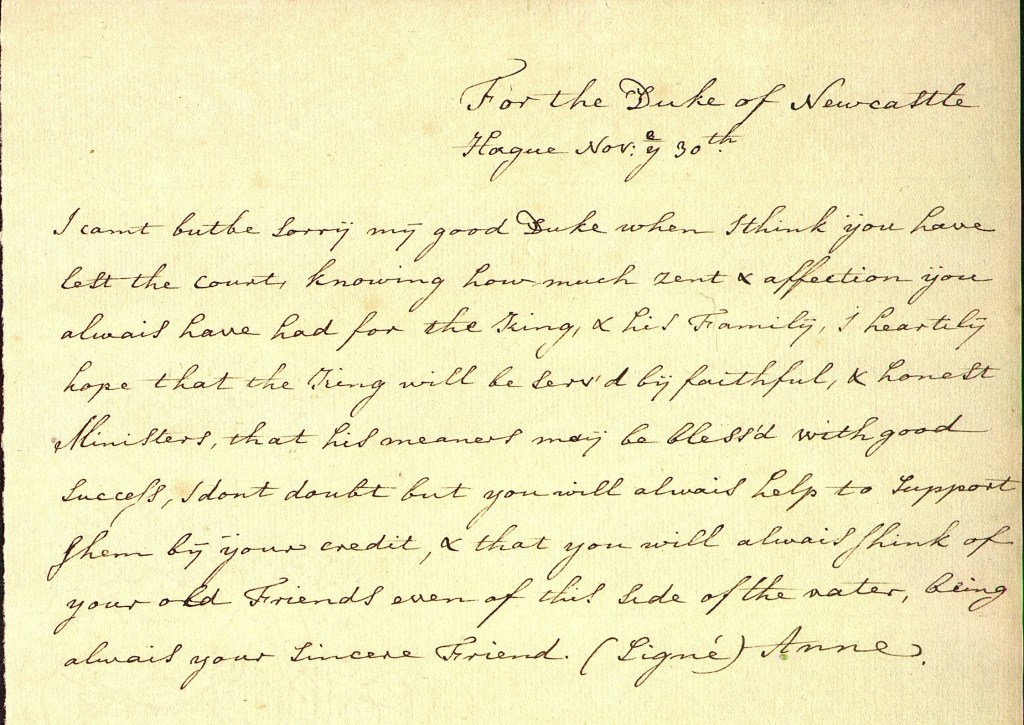 For the Duke of Newcastle
Hague Nov: yᵉ 30th
I cannt but be sorrÿ mÿ good Duke when I think ÿou have
left the court, knowing how much zent & affection ÿou
alwais have had for the King, & his Familÿ, I heartilÿ
hope that the King will be serv'd bÿ faithful, & honest
Ministers, that his meaners maÿ be bless'd with good
success, I dont doubt but you will alwais help to support
them bÿ ÿour credit, & that you will alwais think of
your old Friends even of this side of the vater, being
alwais your sincere Friend. (Signé) Anne.